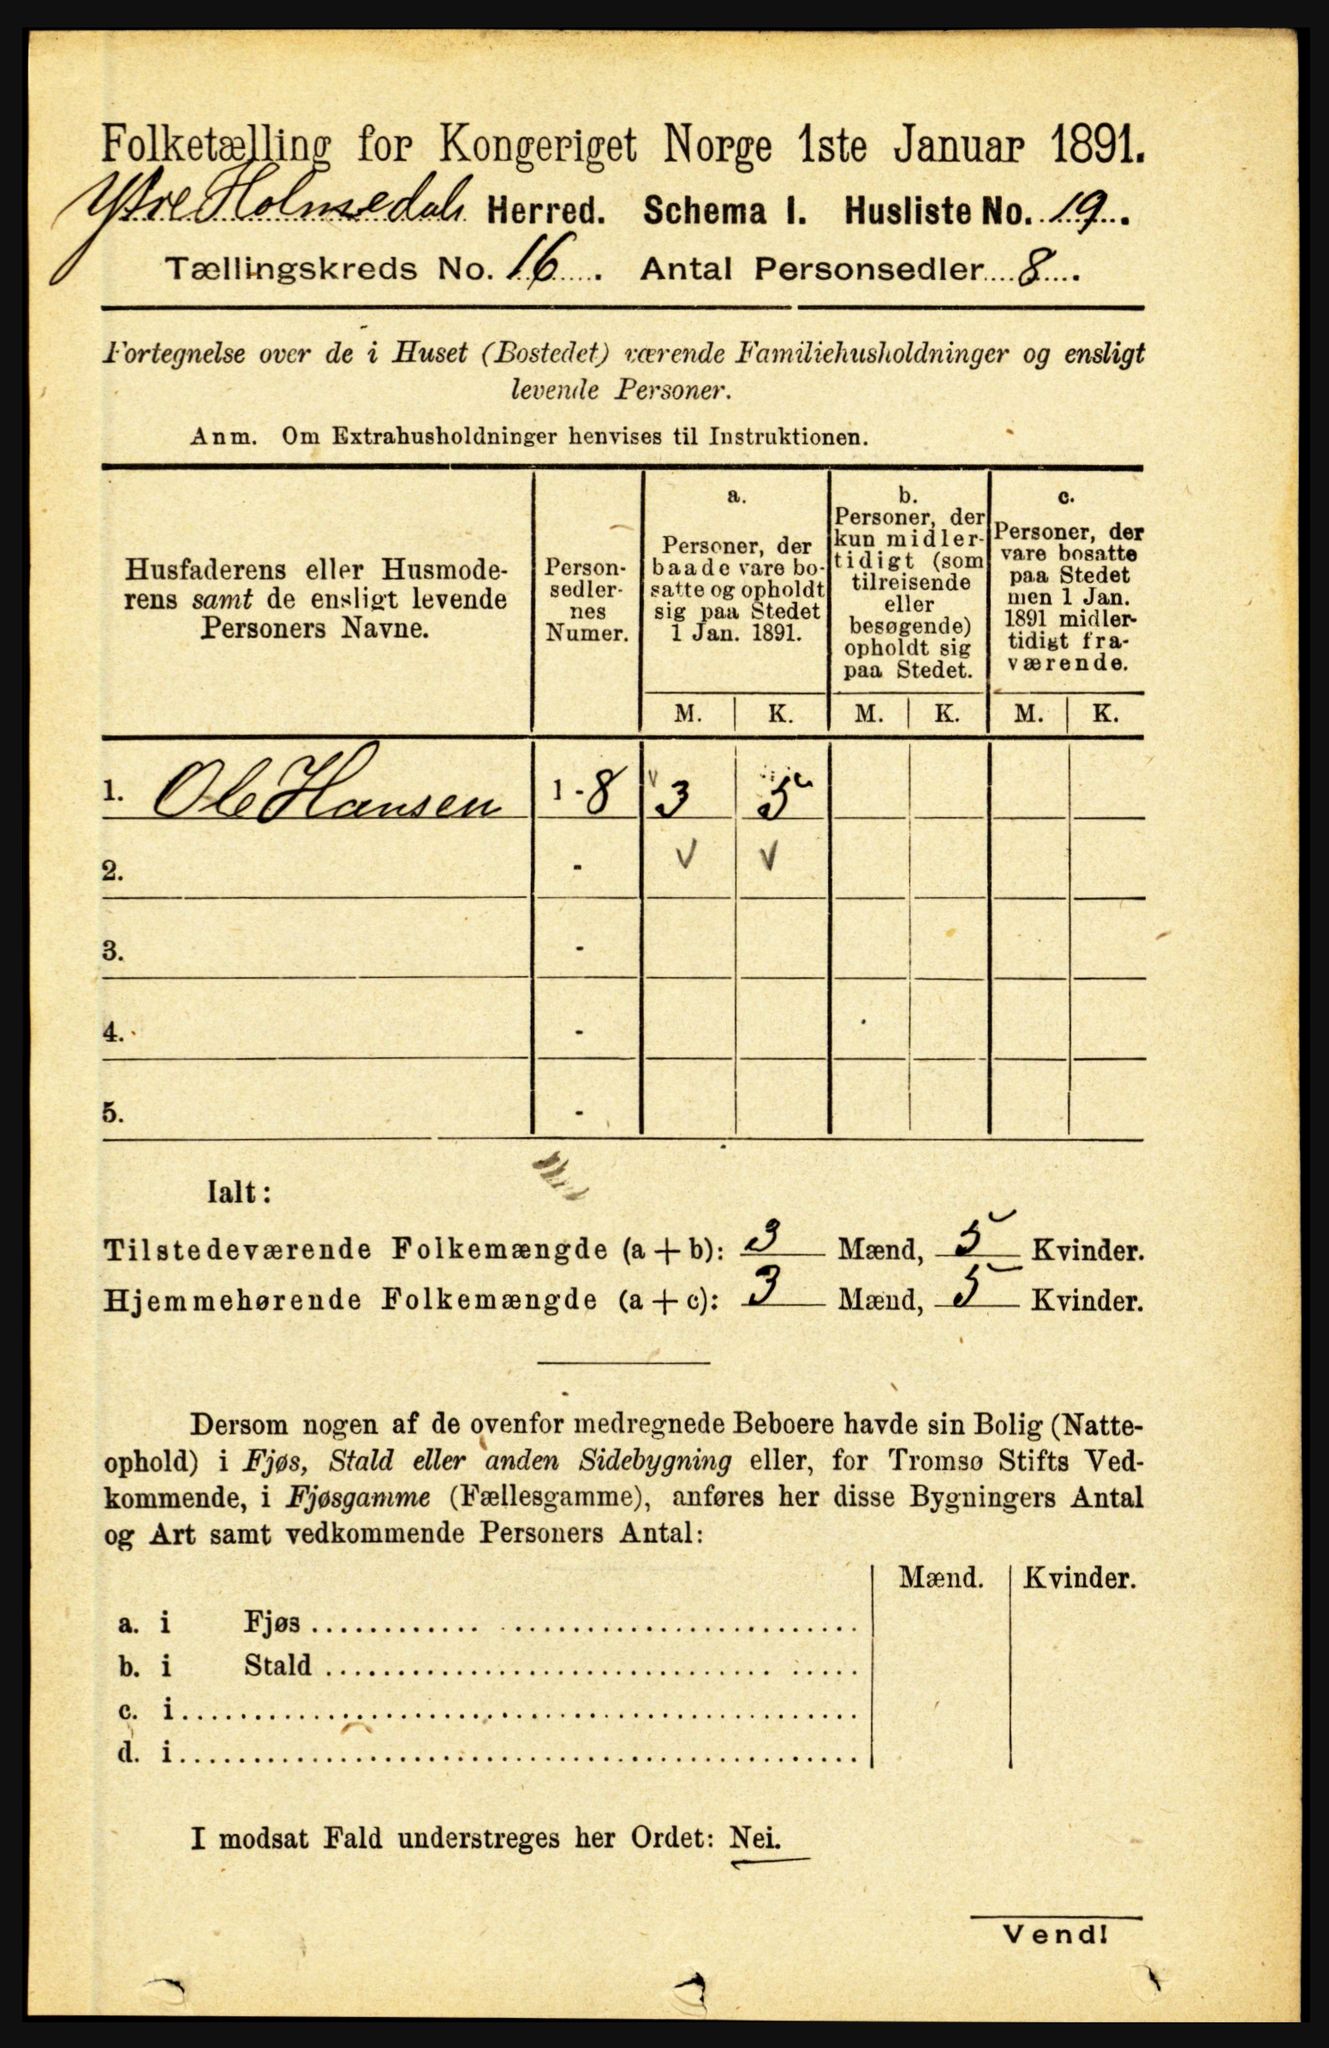 Folketælling for Kongeriget Norge 1ste Januar 1891.
Ytre Holmedals Herred. Schema I. Husliste No. 19.
Tællingskreds No. 16. Antal Personsedler 8.
Fortegnelse over de i Huset (Bostedet) værende Familiehusholdninger og ensligt
levende Personer.
Anm. Om Extrahusholdninger henvises til Instruktionen.
Husfaderens eller Husmode-
rens samt de ensligt levende
Personers Navne.
Person-
sedler-
nes
Numer.
a.
Personer, der
baade vare bo-
satte og opholdt
sig paa Stedet
1 Jan. 1891.
b.
Personer, der
kun midler-
tidigt (som
tilreisende
eller
besøgende)
opholdt sig
paa Stedet.
c.
Personer, der
vare bosatte
paa Stedet
men 1 Jan.
1891 midler-
tidigt fra-
værende.
M. K. M. K. M. K.
1. Ole Hansen 1 - 8 3 5
2. - v v
3. -
4. -
5. -
Ialt:
Tilstedeværende Folkemængde (a + b): 3 Mænd, 5 Kvinder.
Hjemmehørende Folkemængde (a + c): 3 Mænd, 5 Kvinder.
Dersom nogen af de ovenfor medregnede Beboere havde sin Bolig (Natte-
ophold) i Fjøs, Stald eller anden Sidebygning eller, for Tromsø Stifts Ved-
kommende, i Fjøsgamme (Fællesgamme), anføres her disse Bygningers Antal
og Art samt vedkommende Personers Antal:
Mænd. Kvinder.
a. i Fjøs
b. i Stald
c. i
d. i
I modsat Fald understreges her Ordet: Nei.
Vend!